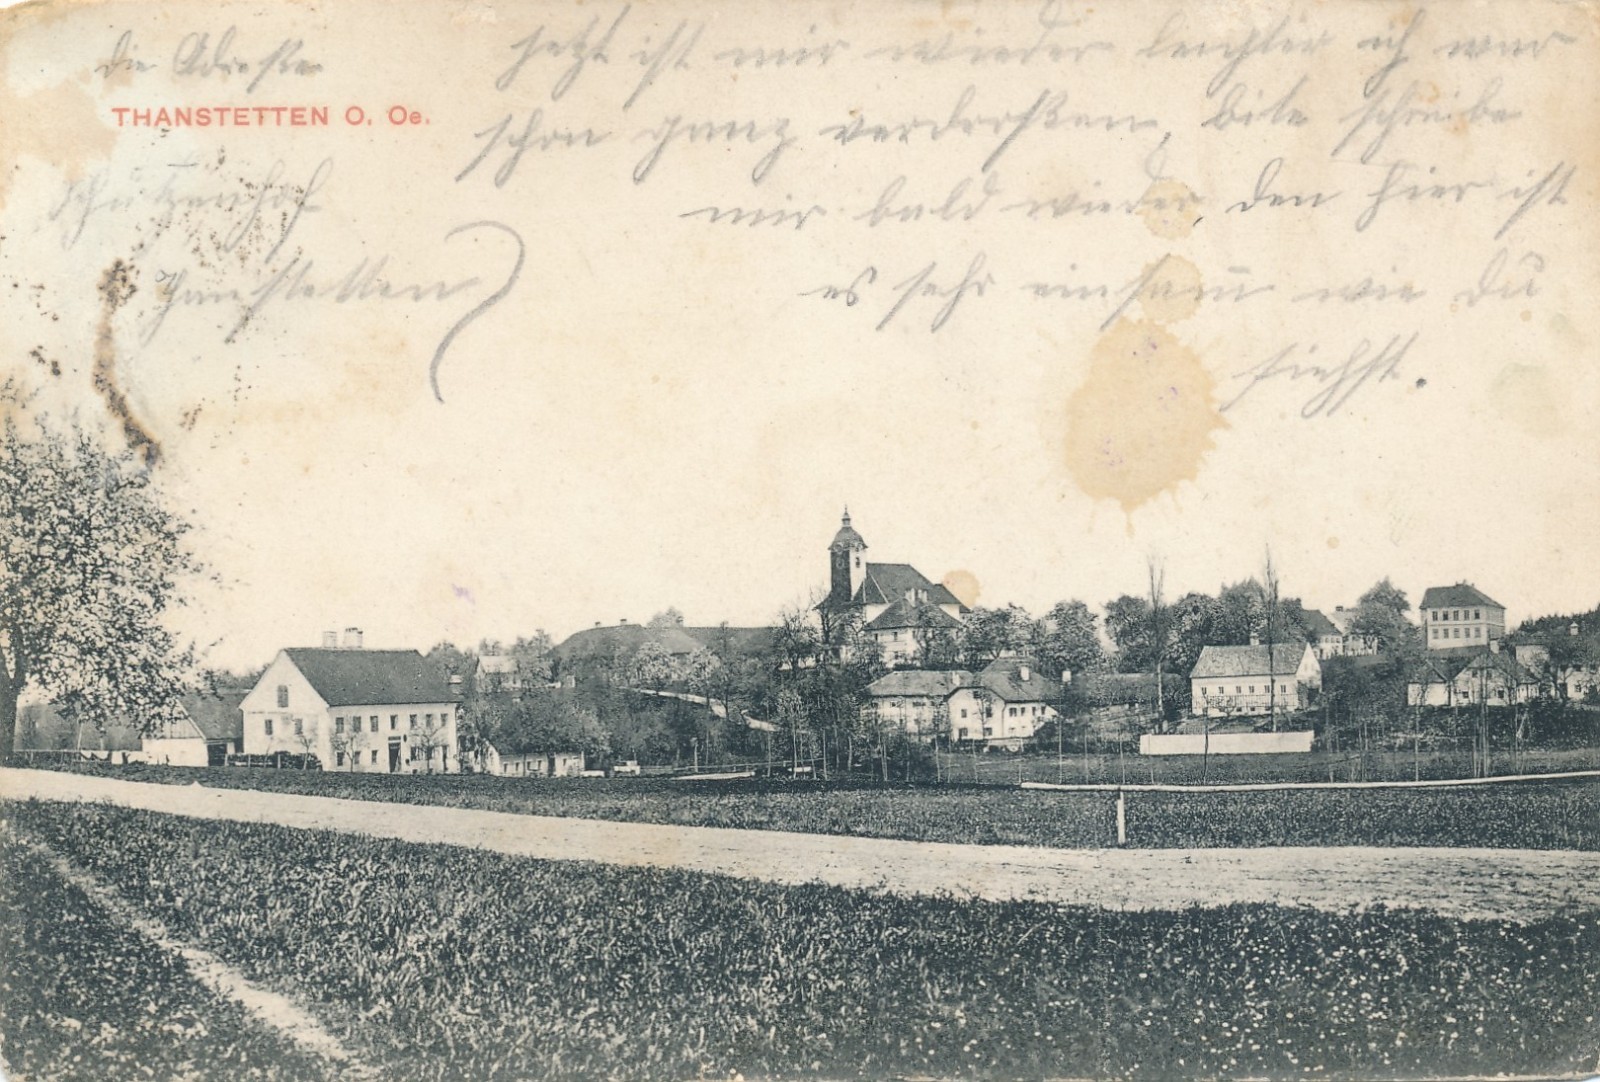 die Adreße
THANSTETTEN O. Oe.
Schützenhof
Thanstetten
jetzt ist mir wieder leichter ich war
schon ganz verdroßen, bite schreibe
mir bald wieder, den hier ist
es sehr einsam wie Du
siehst.